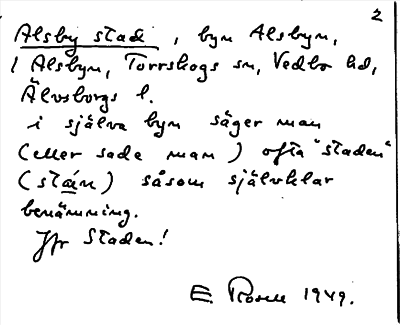 2
Alsby stad, byn Alsbyn,
i Alsbyn, Torrskogs sn, Vedbo hd,
Älvsborgs l.
i själva byn säger man
(eller sade man) ofta "staden"
(stán) såsom självklar
benämning.
Jfr Staden!
E. Rosell 1949.